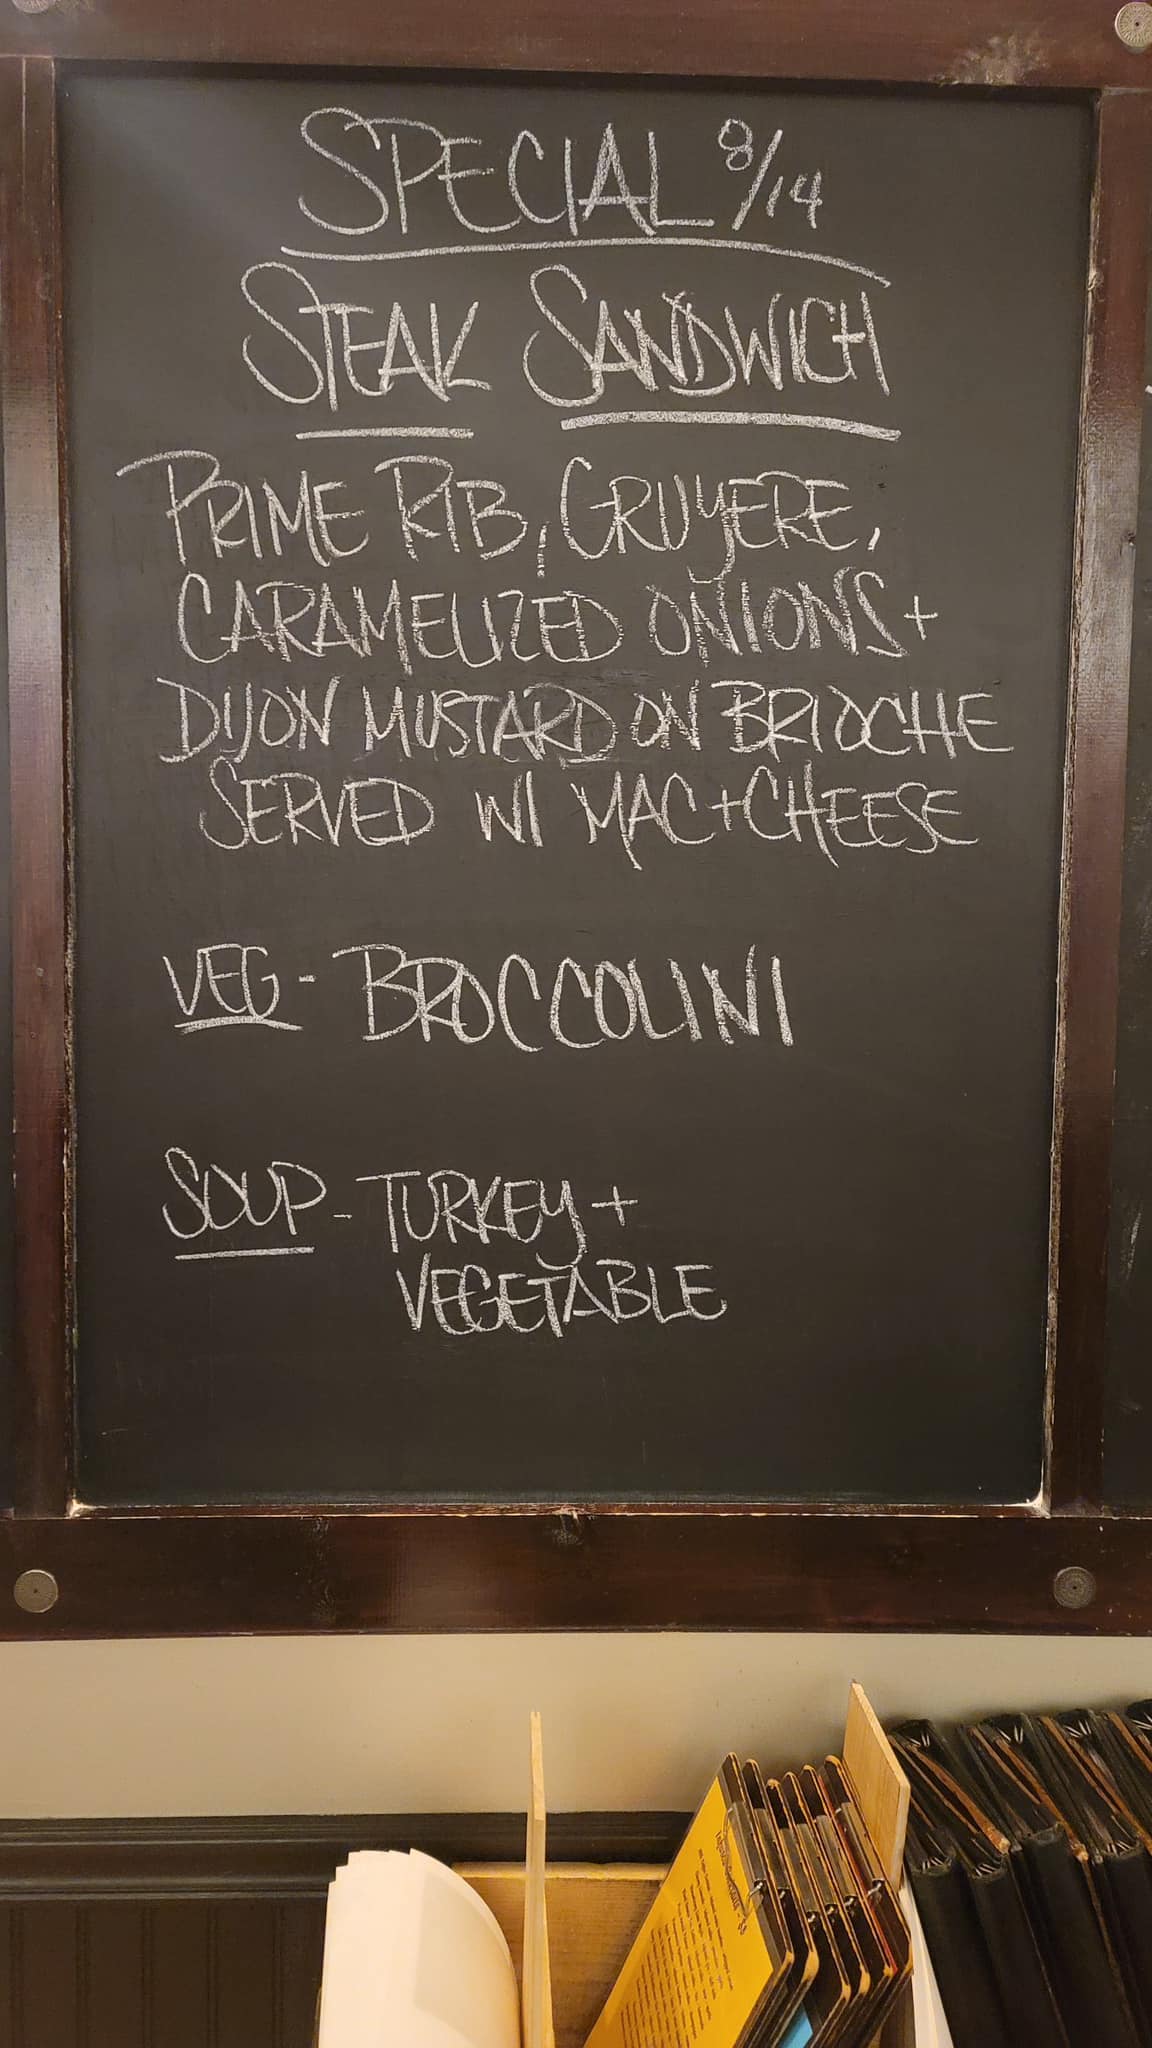 SPECIAL 8/14
STEAK SANDWICH
PRIME RIB, GRUYERE,
CARAMELIZED ONIONS +
DIJON MUSTARD ON BRIOCHE
SERVED W/ MAC + CHEESE
VEG - BROCCOLINI
SOUP - TURKEY +
VEGETABLE